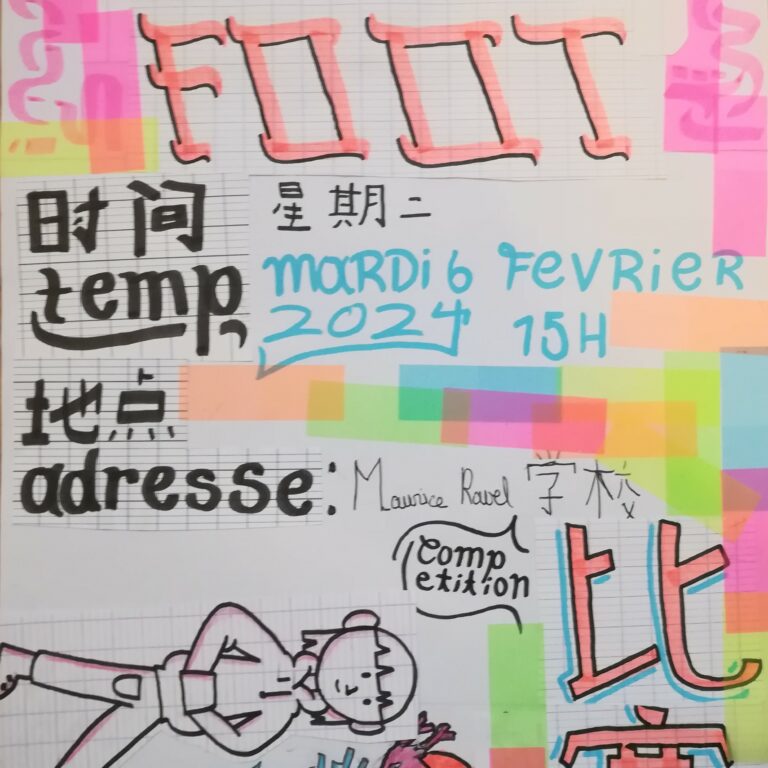 FOOT
时间 星期二
temp, MARDi 6 FeVRieR
2024 15H
地点
adresse: Maurice Ravel 学校
comp
etition
比